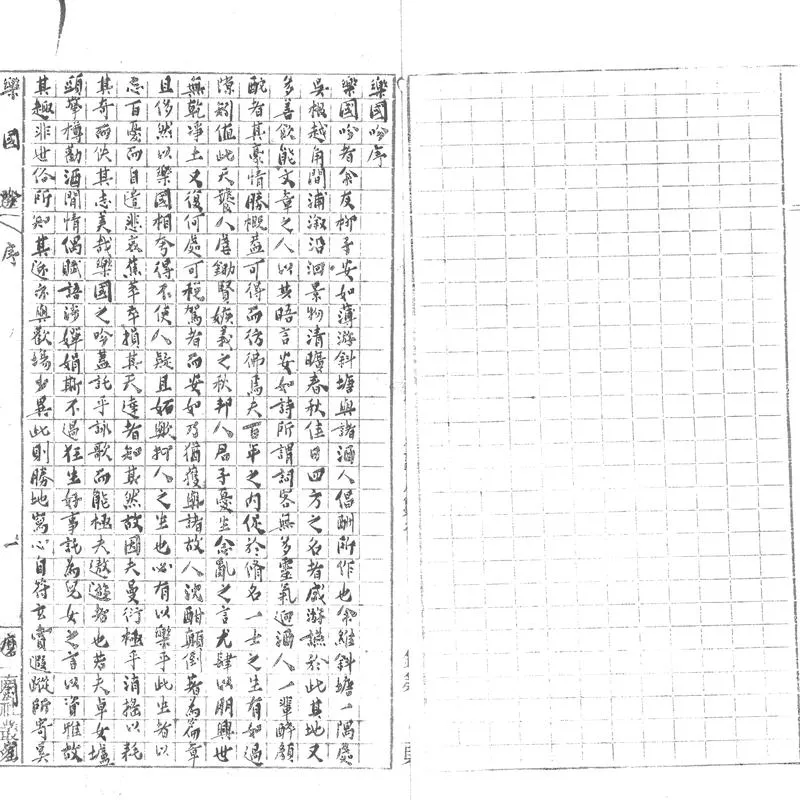 樂國吟序
樂國吟者余友柳子安如薄游斜塘與諸酒人倡酬所作也余維斜塘一隅處
吳根越角間浦漵沿洄景物清曠春秋佳日四方之名者咸游讌於此其地又
多善飲能文章之人以其晤言安如詩所謂詞客無多靈氣迥酒人一輩醉顏
酡者其豪情勝概蓋可得而彷彿焉夫百年之內促於脩名一士之生有如過
隙矧值此天饕人虐鋤賢嫉義之秋邦人君子憂生念亂之言尤肆以朋興世
無乾凈土又復何處可稅駕者而安如乃猶獲與諸故人沈酣顛倒著為篇章
且侈然以樂國相夸得不使人疑且妬歟抑人之生也必有以樂乎此生者以
忘百憂而自遣悲哀蕉萃卒損其天達者知其然故因夫曼衍極乎消搖以耗
其奇而佚其志美哉樂國之吟蓋託乎詠歌而能極夫遨遊者也若夫卓女壚
頭擎樽勸酒閒情偶賦語涉嬋娟斯不過狂生好事託為兒女之言以資雅故
其趣非世俗所知其迹亦與歡場異此則勝地寫心自符玄賞遐蹤所寄莫
樂國吟 序 一